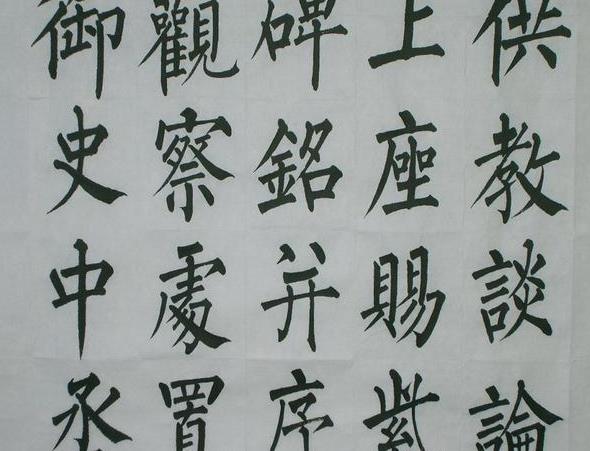 供教談論
上座賜紫
碑銘并序
觀察處置
御史中丞